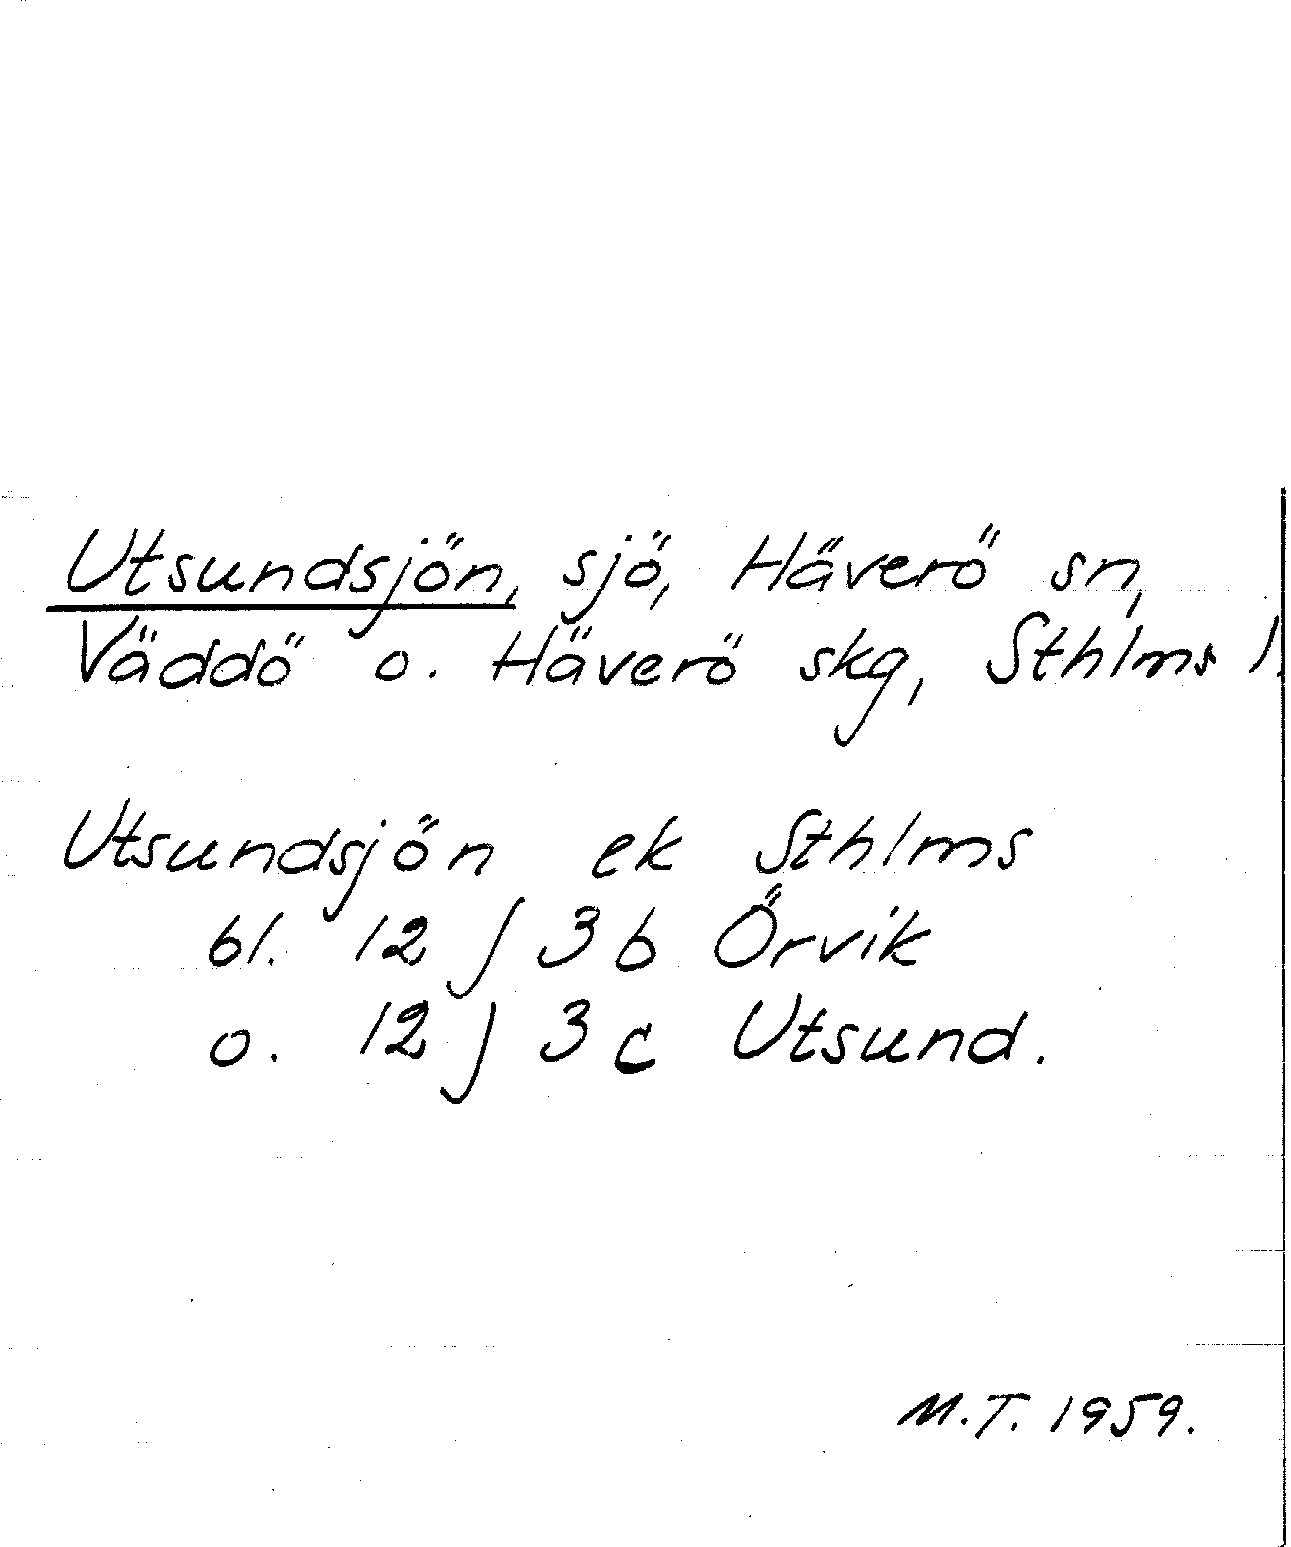 Utsundsjön, sjö, Häverö sn,
Väddö o. Häverö skg, Sthlms l.
Utsundsjön ek Sthlms
bl. 12 J 3 b Örvik
o. 12 J 3 c Utsund.
M.T. 1959.